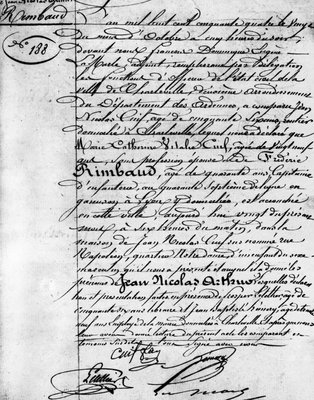 Rimbaud
No. 188
an mil huit cent cinquante quatre le vingt
du mois d'Octobre à cinq heures du soir,
devant nous François Dominique
adjoint, remplissant par délégation
les fonctions d'officier de l'état civil de la
ville de Charleville, deuxième arrondissement
du Département des Ardennes, a comparu Jean
Nicolas Cuif, âgé de cinquante six ans, rentier
domicilié à Charleville, lequel nous a déclaré que
Marie Catherine Vitalie Cuif, âgée de vingt neuf
ans, sans profession, épouse de Fréderic
Rimbaud, âgé de quarante ans, Capitaine
d'infanterie, au quarante septième de ligne en
garnison à Lyon y domicilié, est accouchée
en cette ville aujourd'hui vingt du présent
mois, à six heures du matin, dans la
maison de Jean Nicolas Cuif susnommé rue
Napoléon, quartier Notre Dame d'un enfant du sexe
masculin, qu'il nous a présenté et auquel il a donné les
prénoms de Jean Nicolas Arthur, lesquelles déclara
tion et présentation faites en présence de Prosper Letellier, âgé de
cinquante ans, libraire et Jean Baptiste
ans, employé de la mairie, domiciliés à Charleville
témoins
signé avec nous
Cuif